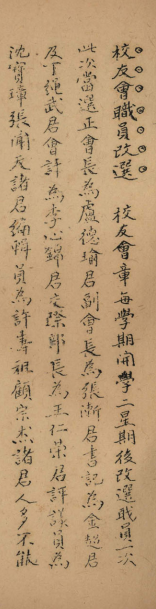 校友會職員改選　校友會章每學期開學二星期後改選職員一次
此次當選正會長為盧德瑜君副會長為張漸君書記為金超君
及丁繩武君會計為李心錦君交際部長為王仁榮君評議員為
沈寶璋張聞友諸君編輯員為許壽祖顧宗杰諸君人多不能